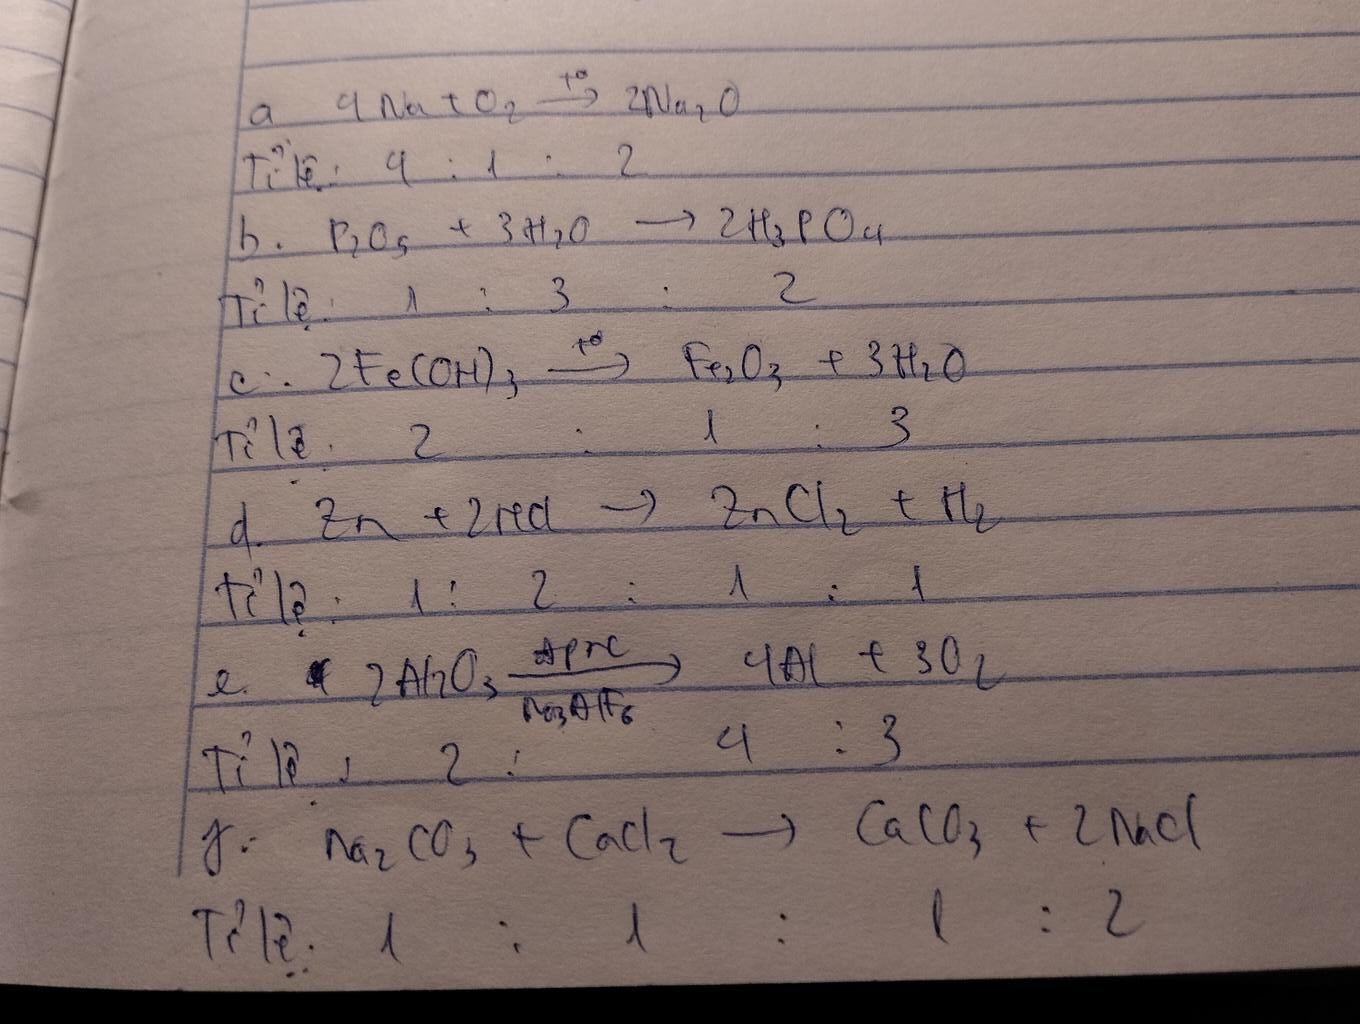 a 4Na + O₂ →(t°) 2Na₂O
Tỉ lệ: 4 : 1 : 2
b. P₂O₅ + 3H₂O → 2H₃PO₄
Tỉ lệ: 1 : 3 : 2
c. 2Fe(OH)₃ →(t°) Fe₂O₃ + 3H₂O
Tỉ lệ: 2 : 1 : 3
d. Zn + 2HCl → ZnCl₂ + H₂
Tỉ lệ: 1 : 2 : 1 : 1
e. 2Al₂O₃ →(đpnc / Na₃AlF₆) 4Al + 3O₂
Tỉ lệ: 2 : 4 : 3
f. Na₂CO₃ + CaCl₂ → CaCO₃ + 2NaCl
Tỉ lệ: 1 : 1 : 1 : 2